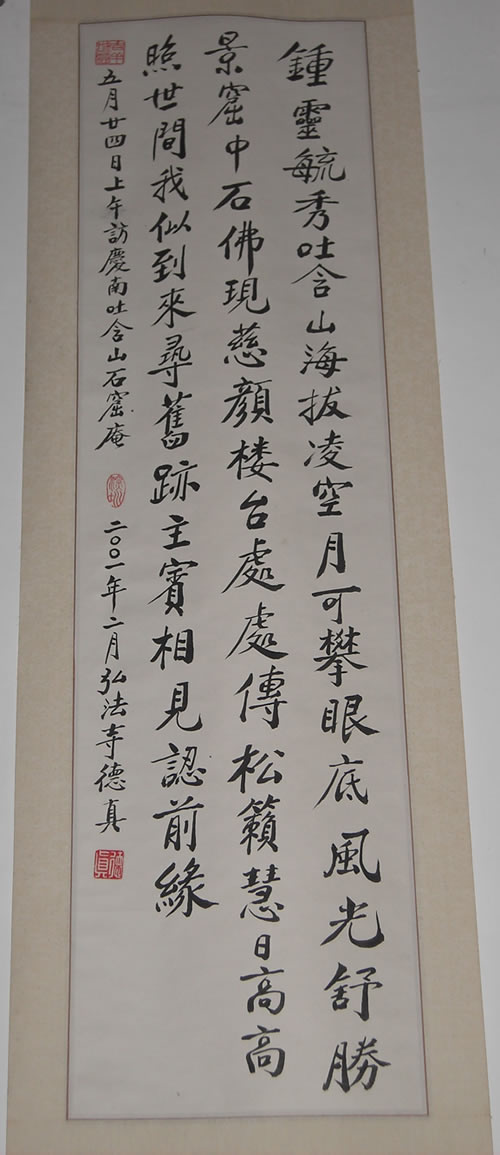 鍾靈毓秀吐含山海拔凌空月可攀眼底風光舒勝
景窟中石佛現慈顏楼台處處傳松籟慧日高高
照世間我似到來尋舊跡主賓相見認前緣
五月廿四日上午訪慶南吐含山石窟庵
二〇〇一年二月弘法寺德真
德真